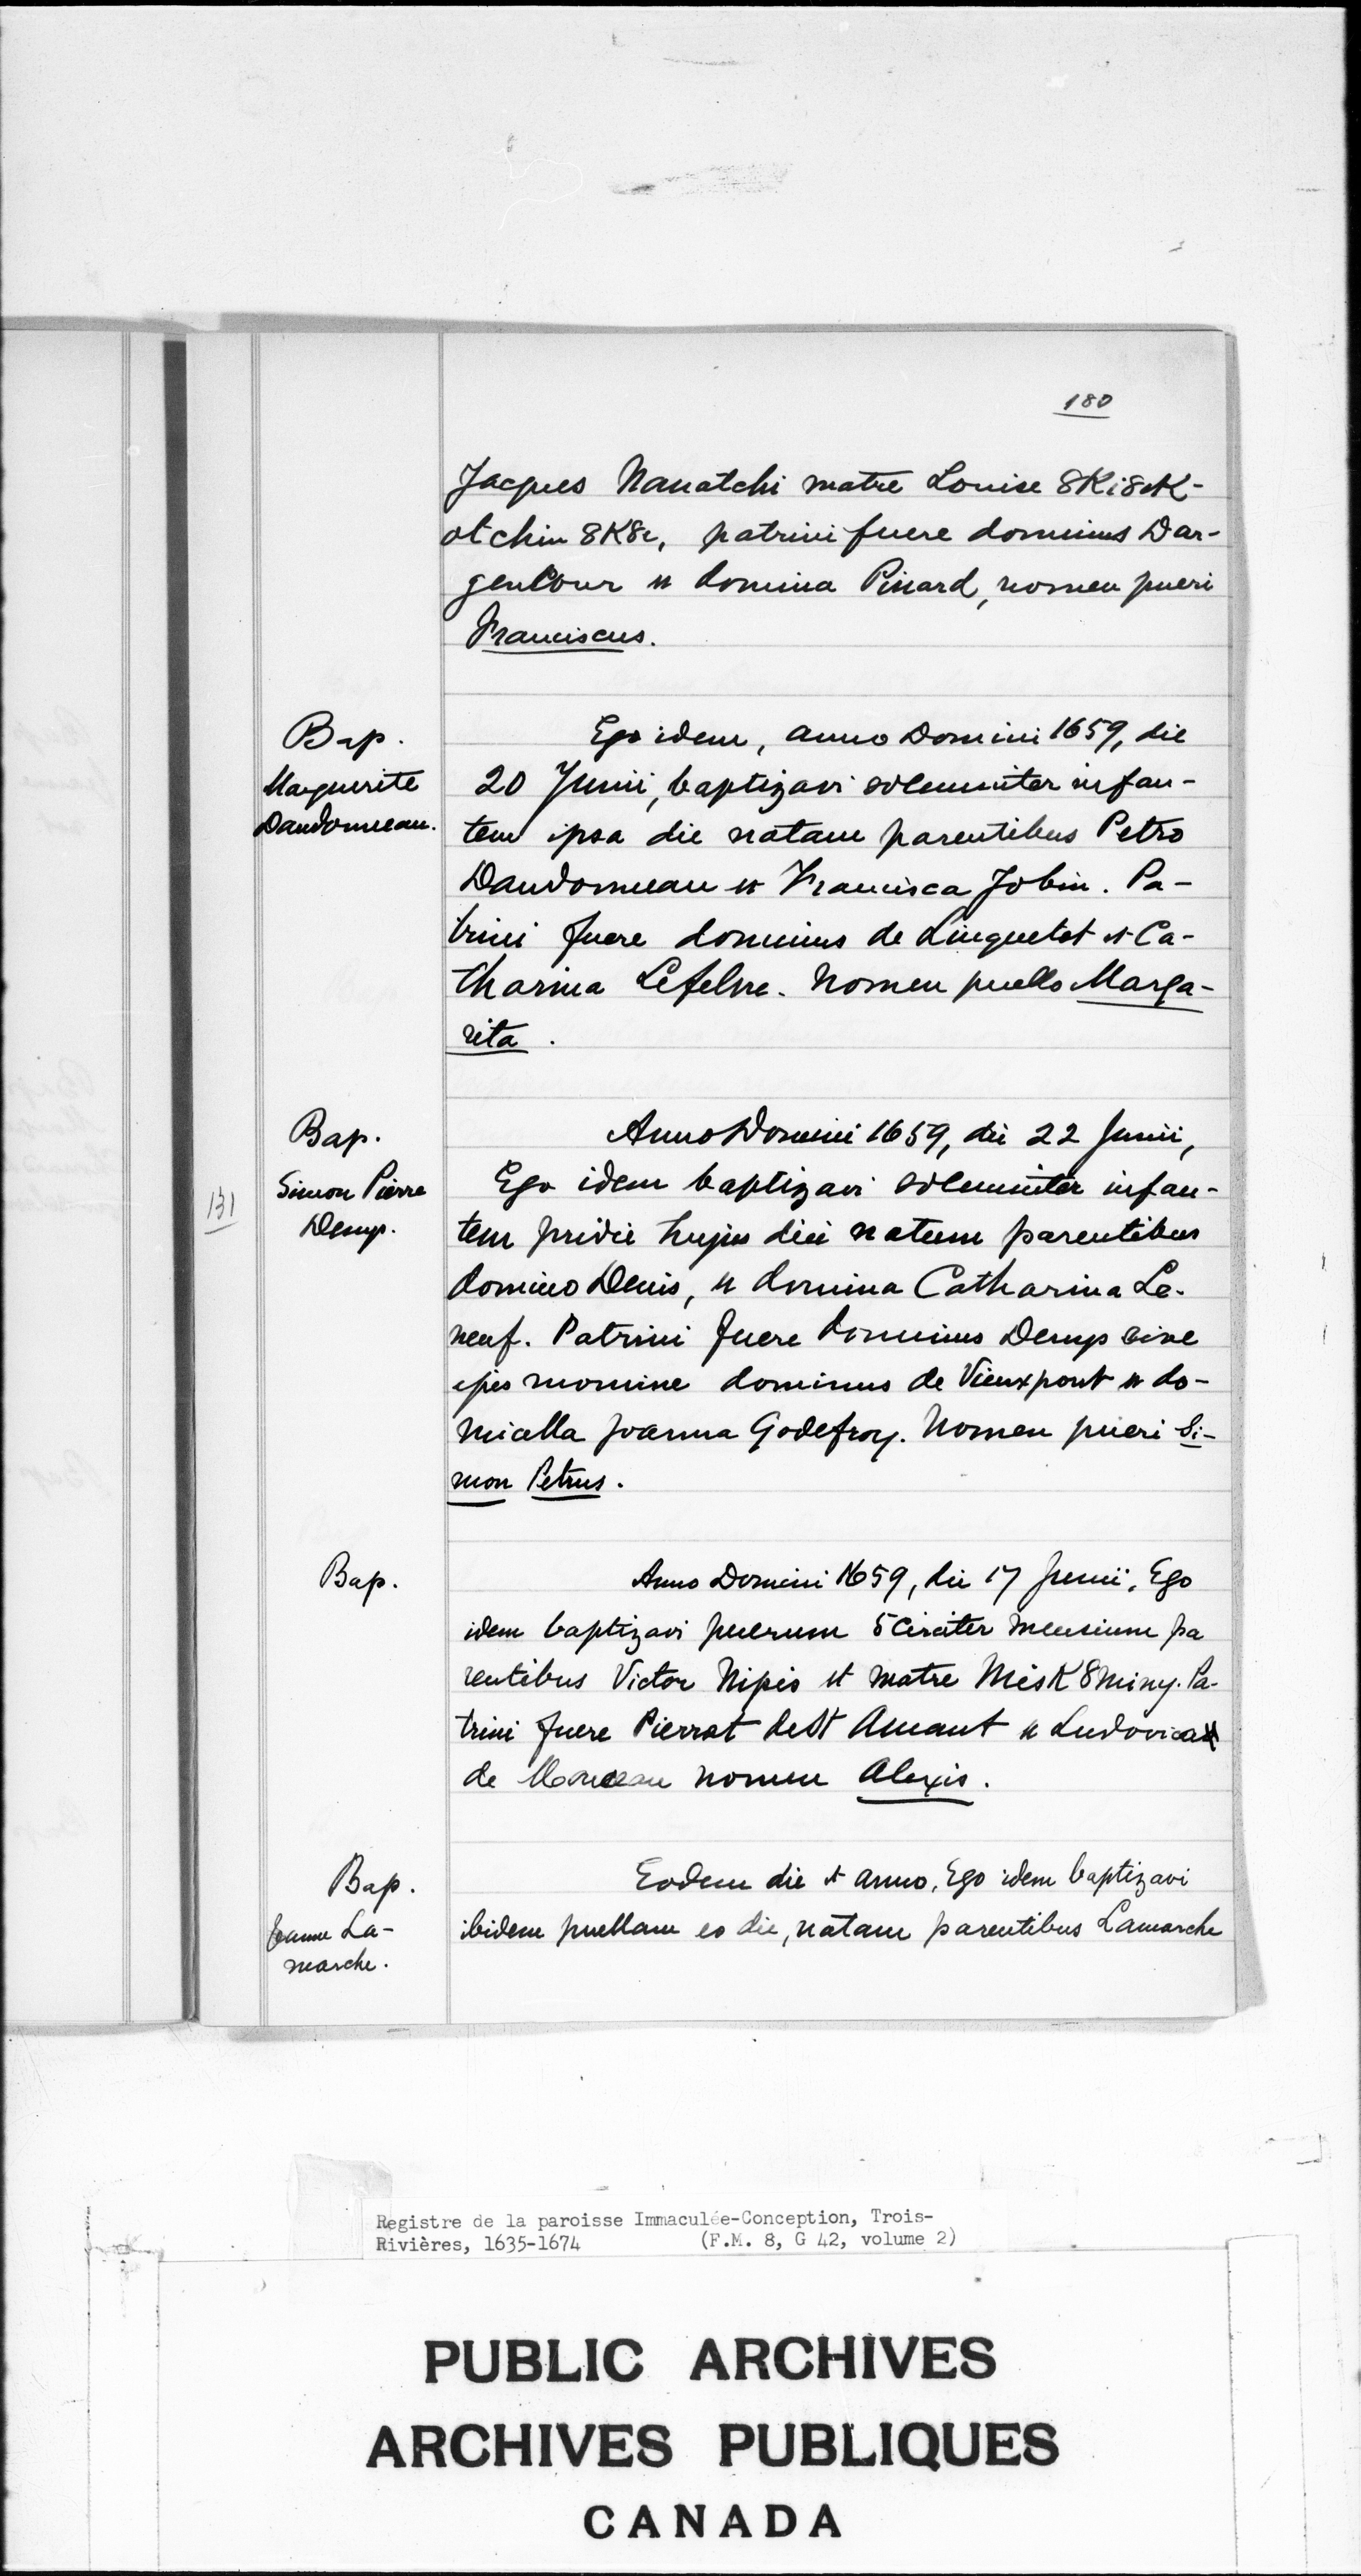 180
Jacques Nanatchi matre Louise 8Ki8cK-
otchin 8K8c, patrini fuere dominus Dar-
gencour et domina Pinard, nomen pueri
Franciscus.
Bap.
Marguerite
Dandonneau.
Ego idem, anno Domini 1659, die
20 Junii, baptizavi solemniter infan-
tem ipsa die natam parentibus Petro
Dandonneau et Francisca Jobin. Pa-
trini fuere dominus de Linguetot et Ca-
tharina Lefebvre. Nomen puello Marga-
rita.
Bap.
Simon Pierre
Denys.
131
Anno Domini 1659, die 22 Junii,
Ego idem baptizavi solemniter infan-
tem pridie hujus diei natum parentibus
domino Denis, et domina Catharina Le-
neuf. Patrini fuere dominus Denys sive
ejus nomine dominus de Vieuxpont et do-
micella Joanna Godefroy. Nomen pueri Si-
mon Petrus.
Bap.
Anno Domini 1659, die 17 Junii, Ego
idem baptizavi puerum 5 circiter mensium pa
rentibus Victor Nipis et matre MisK8miny. Pa-
trini fuere Pierrot de St Amant et Ludovica
de nomen Alexis.
Bap.
Jeanne La-
marche.
Eodem die et anno, Ego idem baptizavi
ibidem puellam eo die, natam parentibus Lamarche
Registre de la paroisse Immaculée-Conception, Trois-
Rivières, 1635-1674 (F.M. 8, G 42, volume 2)
PUBLIC ARCHIVES
ARCHIVES PUBLIQUES
CANADA